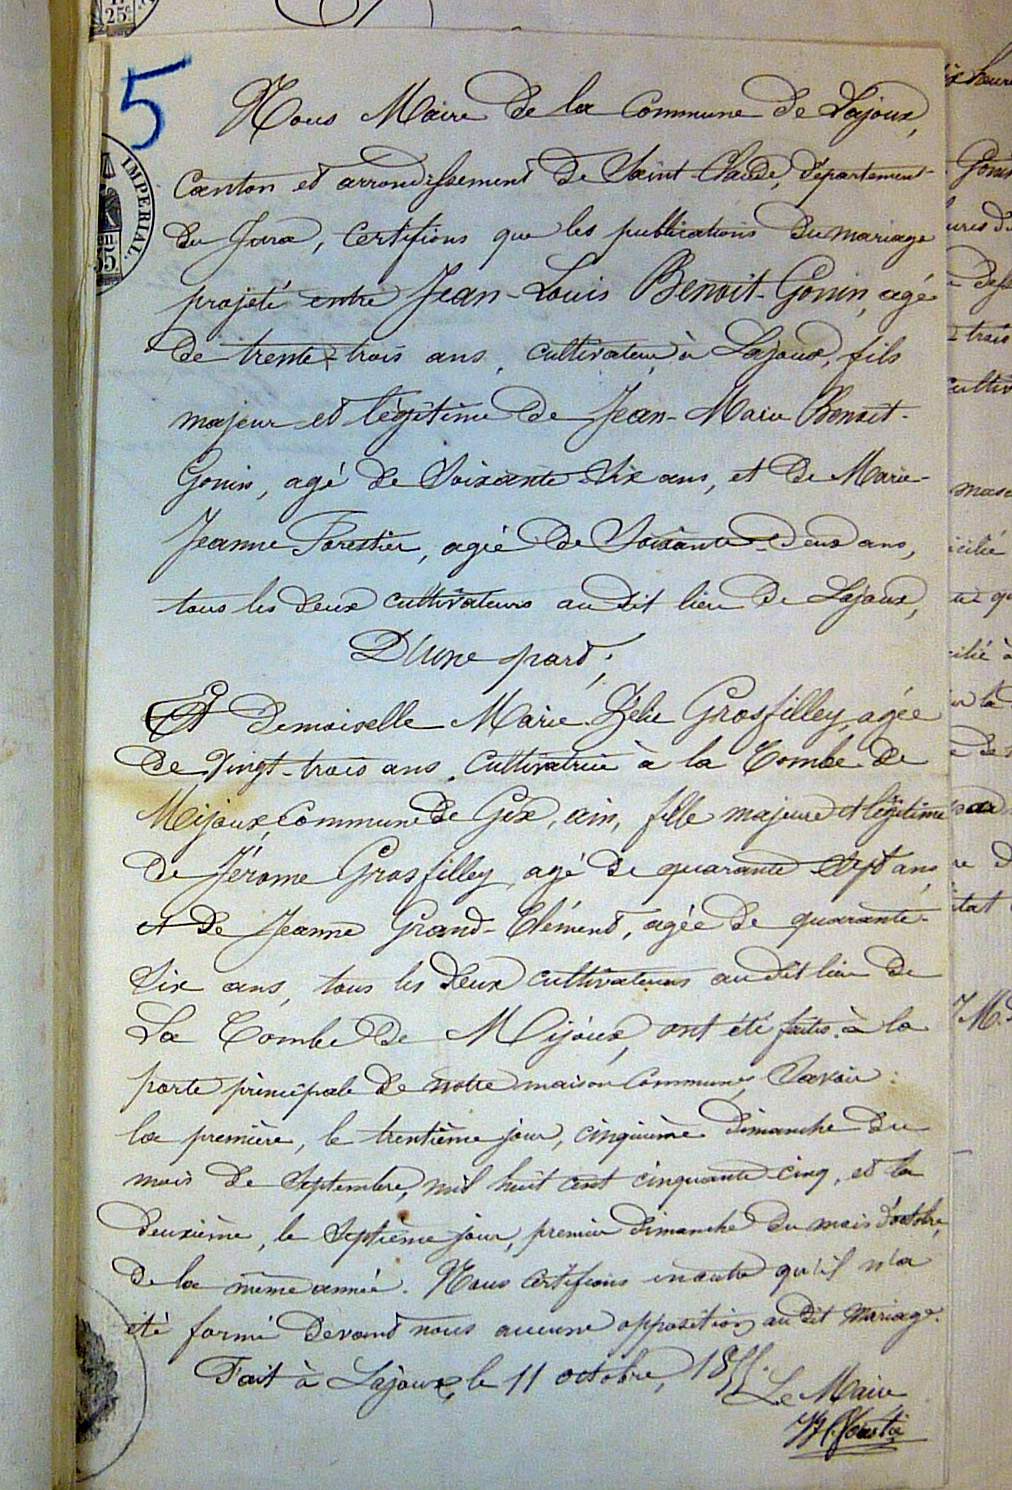 25c
5
IMPERIAL.
35c
Nous Maire de la Commune de Lajoux,
Canton et arrondissement de Saint-Claude, Département
du Jura, certifions que les publications du mariage
projeté entre Jean-Louis Benoit-Gonin, agé
de trente-trois ans, cultivateur à Lajoux, fils
majeur et légitime de Jean-Marie Benoit-
Gonin, agé de soixante-six ans, et de Marie-
Jeanne Forestier, agée de soixante-deux ans,
tous les deux cultivateurs au dit lieu de Lajoux,
D'une part;
Et Demoiselle Marie Zélie Grosfilley, agée
de vingt-trois ans, cultivatrice à la Combe de
Mijoux, Commune de Gex, ain, fille majeure et légitime
de Jérome Grosfilley, agé de quarante-sept ans,
et de Jeanne Grand-Clément, agée de quarante-
six ans, tous les deux cultivateurs au dit lieu de
La Combe de Mijoux, ont été faites à la
porte principale de notre maison Commune, Savoir:
la première, le trentième jour, cinquième dimanche du
mois de Septembre, mil huit cent cinquante-cinq, et la
deuxième, le septième jour, premier dimanche du mois d'octobre,
de la même année. Nous certifions en outre qu'il n'a
été formé devant nous aucune opposition au dit mariage.
Fait à Lajoux, le 11 octobre, 1855.
Le Maire